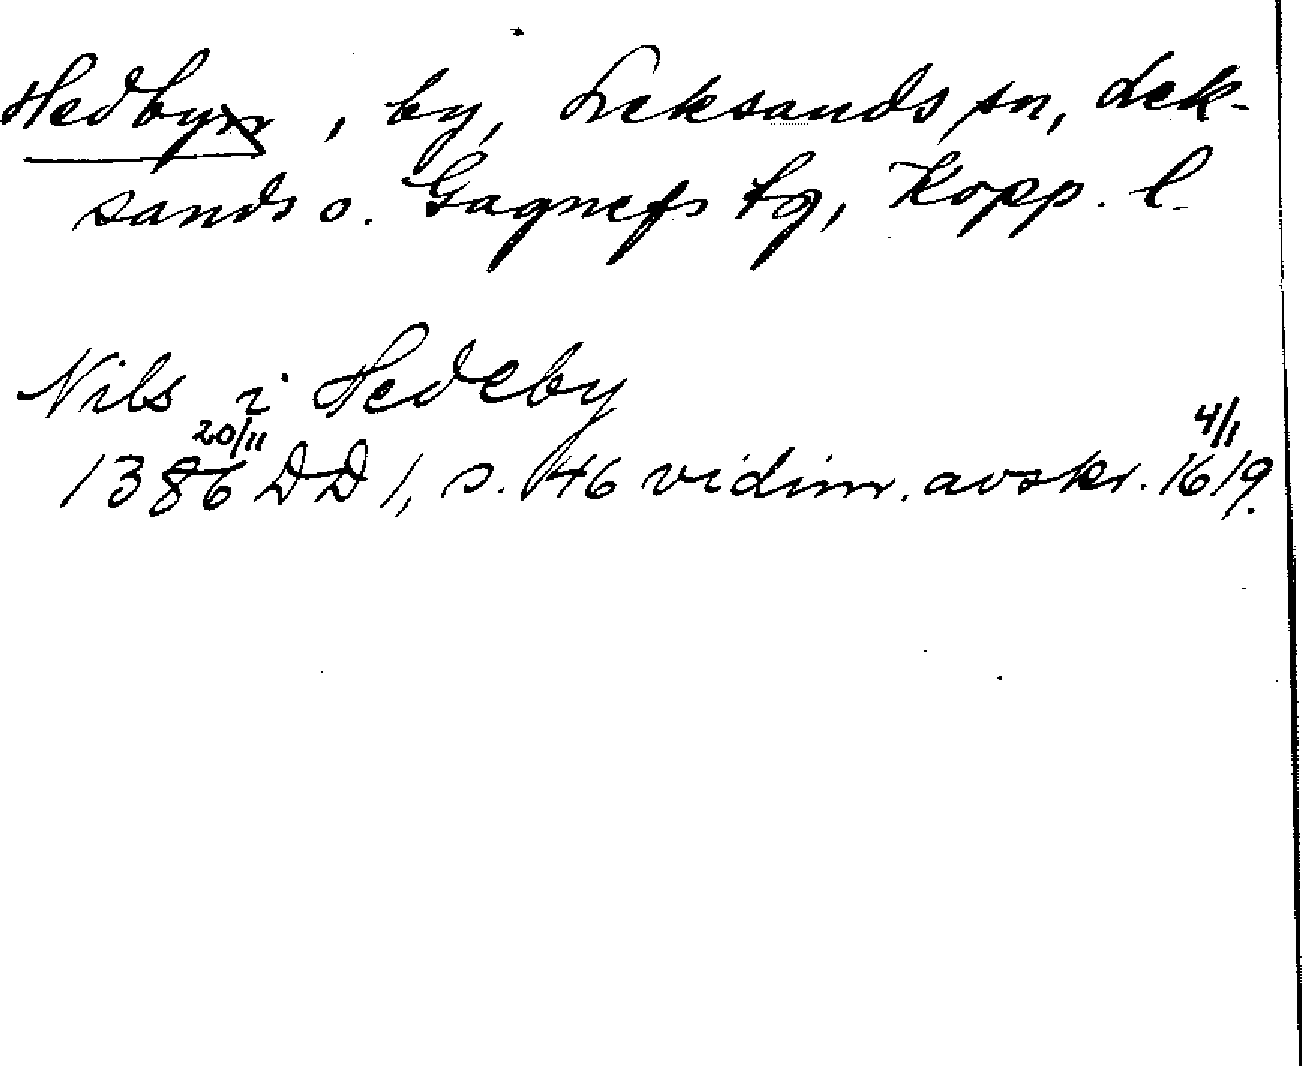 Hedby, by, Leksands sn, Lek-
sands o. Gagnefs tg, Kopp. l.
Nils i Hedeby
20/11 4/1
1386 DD 1, s. 146 vidim. avskr. 1619.